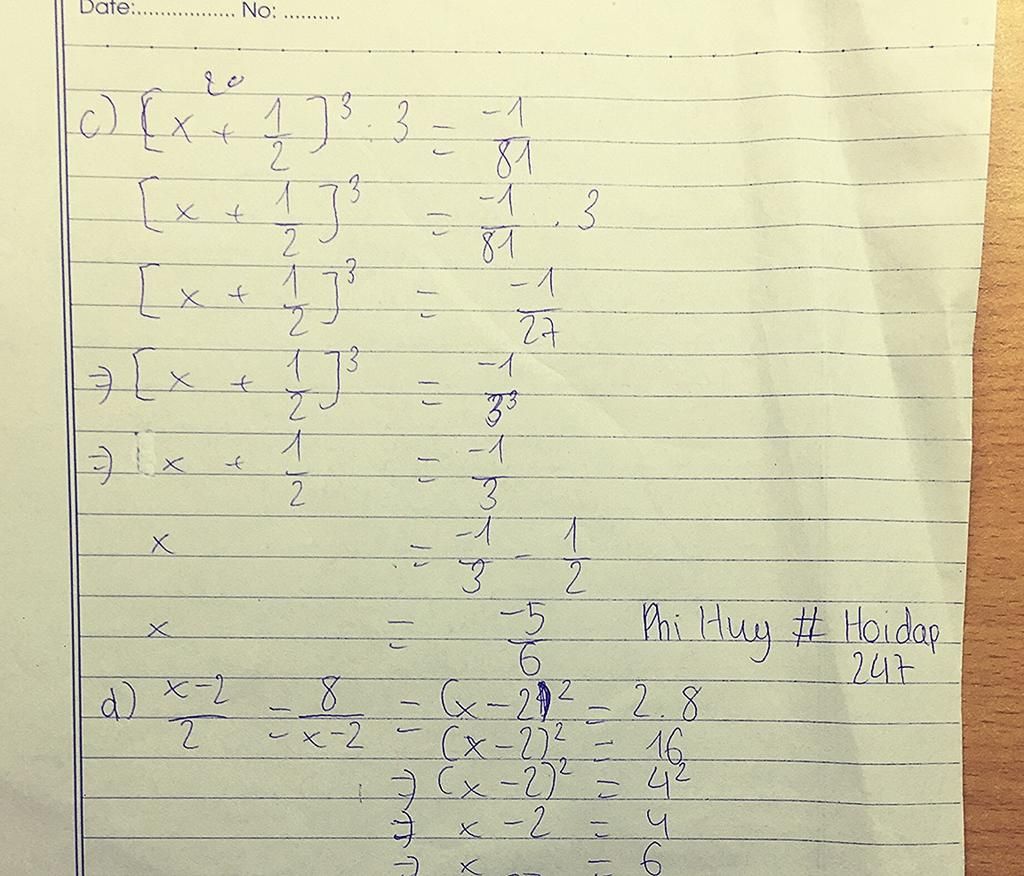 Date:................ No: ..........
c) [x + 1/2]³ . 3 = -1/81
[x + 1/2]³ = -1/81 . 3
[x + 1/2]³ = -1/27
⇒ [x + 1/2]³ = -1/3³
⇒ x + 1/2 = -1/3
x = -1/3 - 1/2
x = -5/6 Phi Huy # Hoidap
247
d) x-2/2 = 8/x-2 = (x-2)² = 2.8
(x-2)² = 16
⇒ (x-2)² = 4²
⇒ x-2 = 4
⇒ x = 6